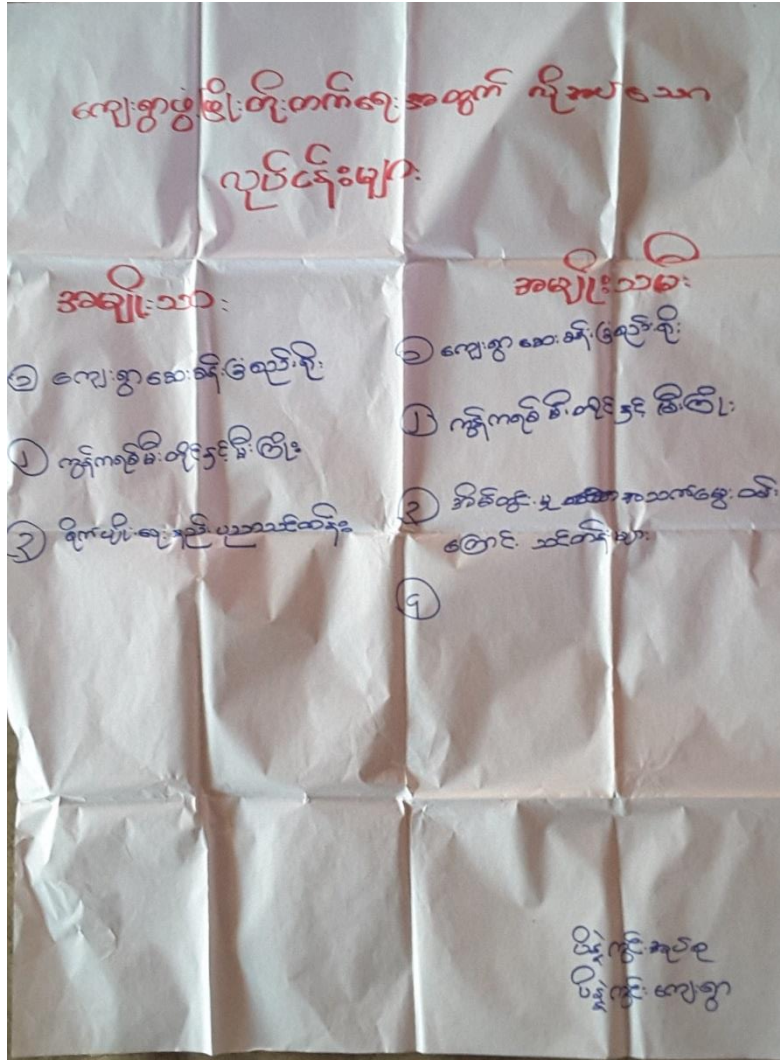 ကျေးရွာဖွံ့ဖြိုးတိုးတက်ရေးအတွက် လိုအပ်သော
လုပ်ငန်းများ
အမျိုးသား
၁ ကျေးရွာဆေးခန်းဖြည့်စည်း
၂ ကွန်ကရစ်မီးတိုင်နှင့်မီးကြိုး
၃ စိုက်ပျိုးရေးနည်းပညာသင်တန်း
အမျိုးသမီး
၁ ကျေးရွာဆေးခန်း
၂ ကွန်ကရစ်မီးတိုင်နှင့် မီးကြိုး
၃ အိမ်တွင်းမှု အသက်မွေးဝမ်း
ကျောင်း သင်တန်းများ
၄
ပိန္နဲကွင်းအုပ်စု
ပိန္နဲကွင်းကျေးရွာ